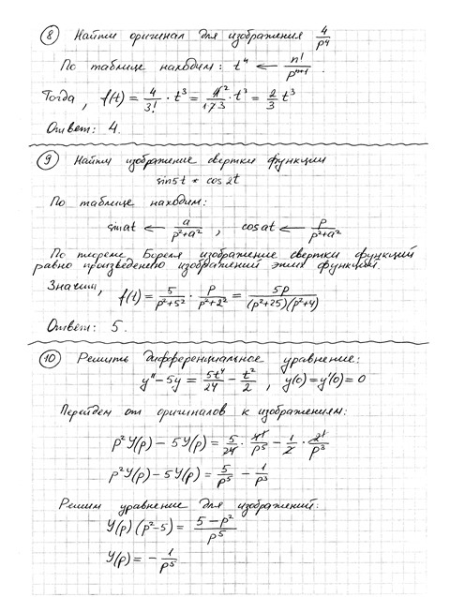 8 Найти оригинал для изображения 4/p⁴
По таблице находим: tⁿ ← n!/pⁿ⁺¹.
Тогда, f(t) = 4/3! · t³ = 4²/1·2·3 · t³ = 2/3 t³
Ответ: 4.
9 Найти изображение свертки функции
sin5t * cos2t
По таблице находим:
sinat ← a/(p²+a²) , cosat ← p/(p²+a²)
По теореме Бореля изображение свертки функций
равно произведению изображений этих функций.
Значит, f(t) = 5/(p²+5²) · p/(p²+2²) = 5p/((p²+25)(p²+4))
Ответ: 5.
10 Решить дифференциальное уравнение:
y'' - 5y = 5t⁴/24 - t²/2 , y(0) = y'(0) = 0
Перейдем от оригиналов к изображениям:
p²Y(p) - 5Y(p) = 5/24 · 4!/p⁵ - 1/2 · 2!/p³
p²Y(p) - 5Y(p) = 5/p⁵ - 1/p³
Решим уравнение для изображений:
Y(p)(p²-5) = (5-p²)/p⁵
Y(p) = - 1/p⁵